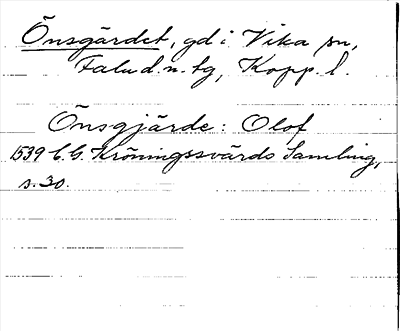 Önsgärdet, gd i Vika sn,
Falu d. n. tg, Kopp. l.
Önsgjärde: Olof
1539 C. G. Kröningssvärds Samling,
s. 30.